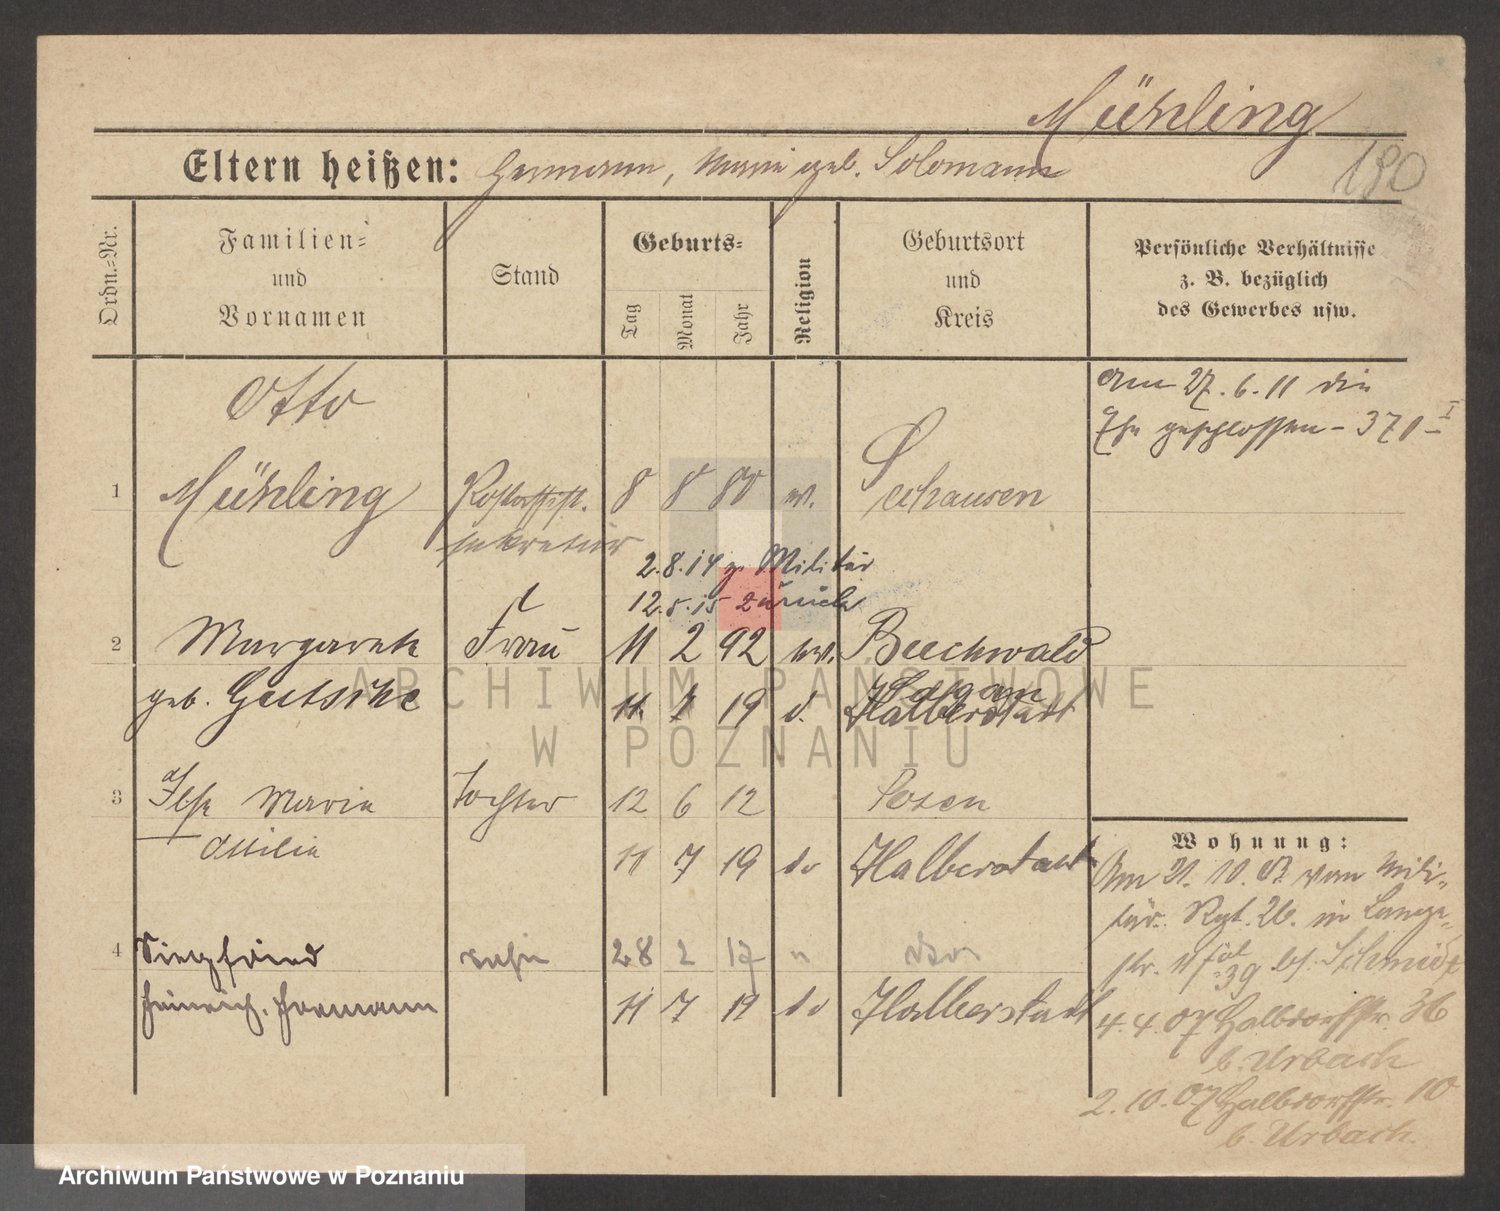 Mühling
Eltern heißen: Hermann, Marie geb. Solomann
180
Ordn.=Nr.
Familien=
und
Vornamen
Stand
Geburts=
Tag
Monat
Jahr
Religion
Geburtsort
und
Kreis
Persönliche Verhältnisse
z. B. bezüglich
des Gewerbes usw.
Otto
Am 27.6.11 die
Ehe geschlossen – 371 – I
1 Mühling Postassist. 8 8 80 ev. Seehausen
sekretär
2.8.14 z. Militär
12.5.15 zurück
2 Margarete Frau 11 2 92 ev. Buchwald
Sagan
geb. Gutsche 11. 7 19 v. Halberstadt
3 Ilse Maria Tochter 12 6 12 Posen
Ottilie 11 7 19 do Halberstadt
4 Siegfried Sohn 28 2 17
Heinrich. Hermann 11 7 19 do Halberstadt
Wohnung:
Am 21. 10. von Mili-
tär. Rgt. 26. in Lange-
str. 11 39 bei Schmidt
4.4.07 Halbdorfstr. 36
b. Urbach
2.10.07 Halbdorfstr. 10
b. Urbach.
ARCHIWUM PAŃSTWOWE
W POZNANIU
Archiwum Państwowe w Poznaniu